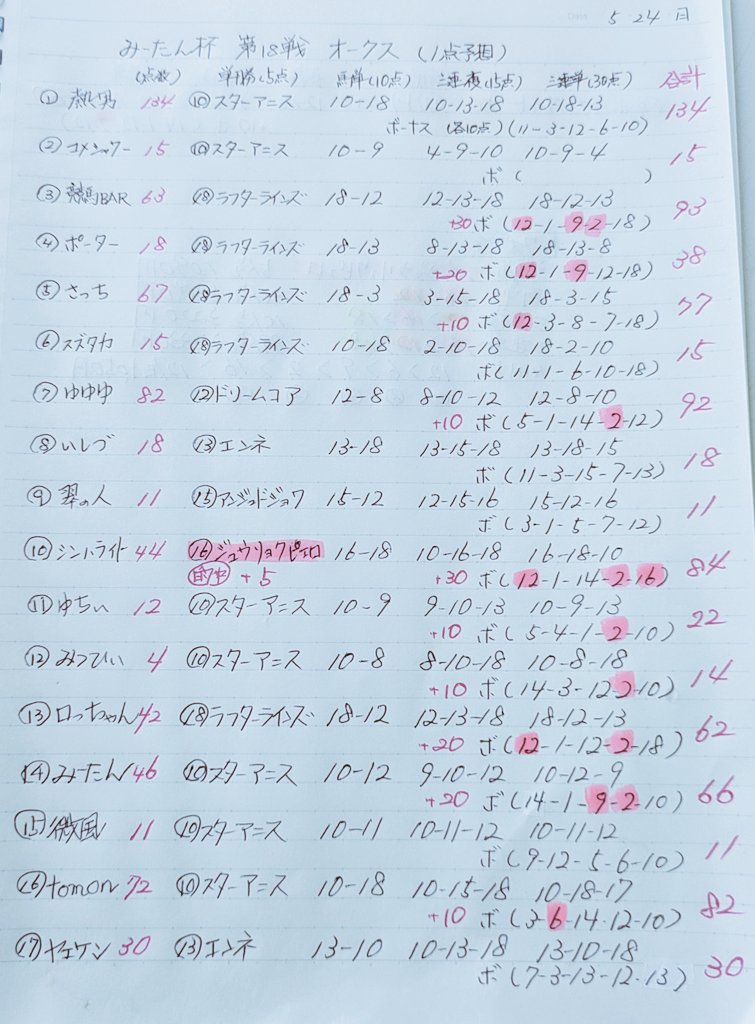 5 24 日
みーたん杯 第18戦 オークス (1点予想)
(点数) 単勝(5点) 馬単(10点) 三連複(15点) 三連単(30点) 合計
① 熱男 134 ⑩スターアニス 10-18 10-13-18 10-18-13 134
ボーナス (各10点)(11-3-12-6-10)
② コメシャワー 15 ⑩スターアニス 10-9 4-9-10 10-9-4 15
ボ( )
③ 競馬BAR 63 ⑱ラフターラインズ 18-12 12-13-18 18-12-13 93
+30 ボ(12-1-9-2-18)
④ ポーター 18 ⑱ラフターラインズ 18-13 8-13-18 18-13-8 38
+20 ボ(12-1-9-12-18)
⑤ さっち 67 ⑱ラフターラインズ 18-3 3-15-18 18-3-15 77
+10 ボ(12-3-8-7-18)
⑥ スズタカ 15 ⑱ラフターラインズ 10-18 2-10-18 18-2-10 15
ボ(11-1-6-10-18)
⑦ ゆゆゆ 82 ⑫ドリームコア 12-8 8-10-12 12-8-10 92
+10 ボ(5-1-14-2-12)
⑧ いしづ 18 ⑬エンネ 13-18 13-15-18 13-18-15 18
ボ(11-3-15-7-13)
⑨ 翠の人 11 ⑮アンジュドジョワ 15-12 12-15-16 15-12-16 11
ボ(3-1-5-7-12)
⑩ シンハライト 44 ⑯ジュウリョクピエロ 16-18 10-16-18 16-18-10 84
的中 +5 +30 ボ(12-1-14-2-16)
⑪ ゆちぃ 12 ⑩スターアニス 10-9 9-10-13 10-9-13 22
+10 ボ(5-4-1-2-10)
⑫ みつひぃ 4 ⑩スターアニス 10-8 8-10-18 10-8-18 14
+10 ボ(14-3-12-2-10)
⑬ ロっちゃん 42 ⑱ラフターラインズ 18-12 12-13-18 18-12-13 62
+20 ボ(12-1-12-2-18)
⑭ みーたん 46 ⑩スターアニス 10-12 9-10-12 10-12-9 66
+20 ボ(14-1-9-2-10)
⑮ 微風 11 ⑩スターアニス 10-11 10-11-12 10-11-12 11
ボ(9-12-5-6-10)
⑯ tomon 72 ⑩スターアニス 10-18 10-15-18 10-18-17 82
+10 ボ(3-6-14-12-10)
⑰ ヤエケン 30 ⑬エンネ 13-10 10-13-18 13-10-18 30
ボ(7-3-13-12-13)